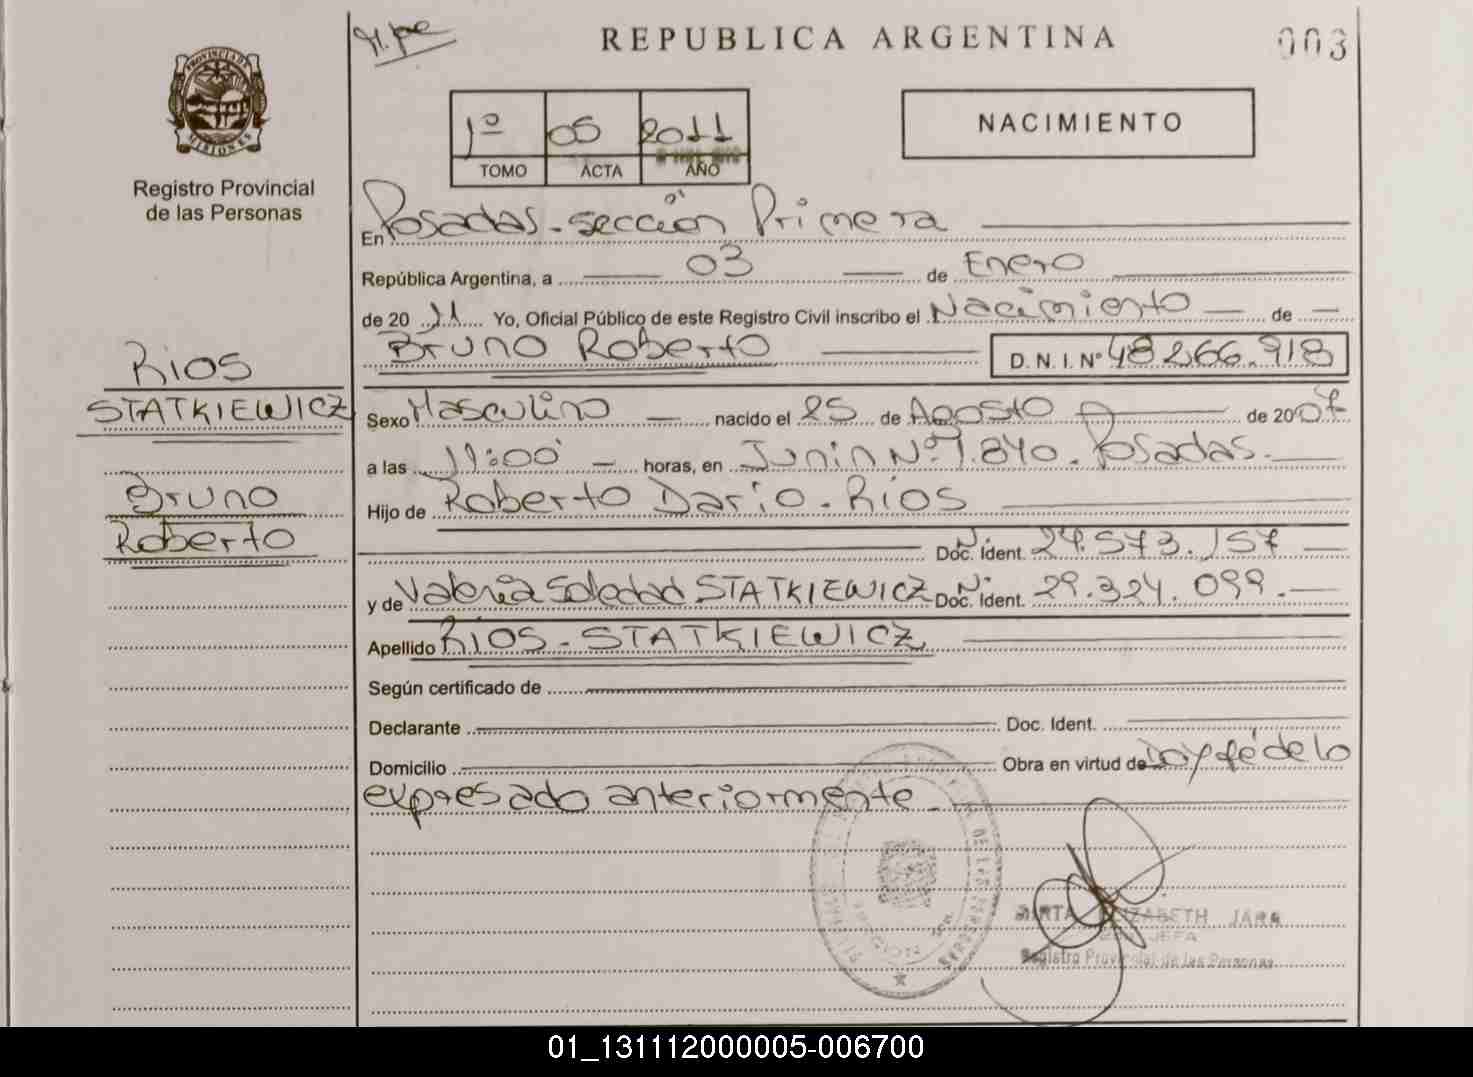 REPUBLICA ARGENTINA
003
PROVINCIA DE MISIONES
Registro Provincial
de las Personas
1º 05 2011
TOMO ACTA AÑO
NACIMIENTO
En Posadas - sección Primera
República Argentina, a 03 de Enero
de 2011 Yo, Oficial Público de este Registro Civil inscribo el Nacimiento de
Bruno Roberto D. N. I. Nº 48.266.918
RIOS
STATKIEWICZ
Bruno
Roberto
Sexo Masculino nacido el 25 de Agosto de 2007
a las 11:00 horas, en Junin Nº 1.840. Posadas.
Hijo de Roberto Dario - Rios
Doc. Ident. Nº 24.573.157
y de Valeria Soledad STATKIEWICZ Doc. Ident. Nº 29.324.099.
Apellido RIOS - STATKIEWICZ
Según certificado de
Declarante Doc. Ident.
Domicilio Obra en virtud de Doy fé de lo
expresado anteriormente
ELIZABETH JARA
JEFA
Registro Provincial de las Personas
01_131112000005-006700